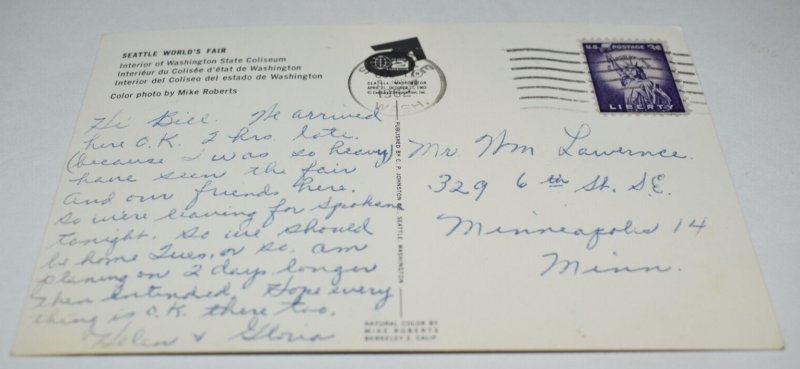 SEATTLE WORLD'S FAIR
Interior of Washington State Coliseum
Intérieur du Colisée d'état de Washington
Interior del Coliseo del estado de Washington
Color photo by Mike Roberts
Hi Bill. We arrived
here O.K. 2 hrs. late.
(because I was so heavy)
have seen the fair
and our friends here.
So were leaving for Spokane
tonight. So we should
be home Tues, or so. am
planing on 2 days longer
then entended. Hope every
thing is O.K. there too.
Helen & Gloria
SEATTLE, WASHINGTON
APRIL 21, OCTOBER 21, 1962
1962
WASH.
PUBLISHED BY C. P. JOHNSTON CO. SEATTLE, WASHINGTON
NATURAL COLOR BY
MIKE ROBERTS
BERKELEY 2, CALIF.
U.S. POSTAGE 3¢
LIBERTY
Mr. Wm Lawernce.
329 6th St. S.E.
Minneapolis 14
Minn.